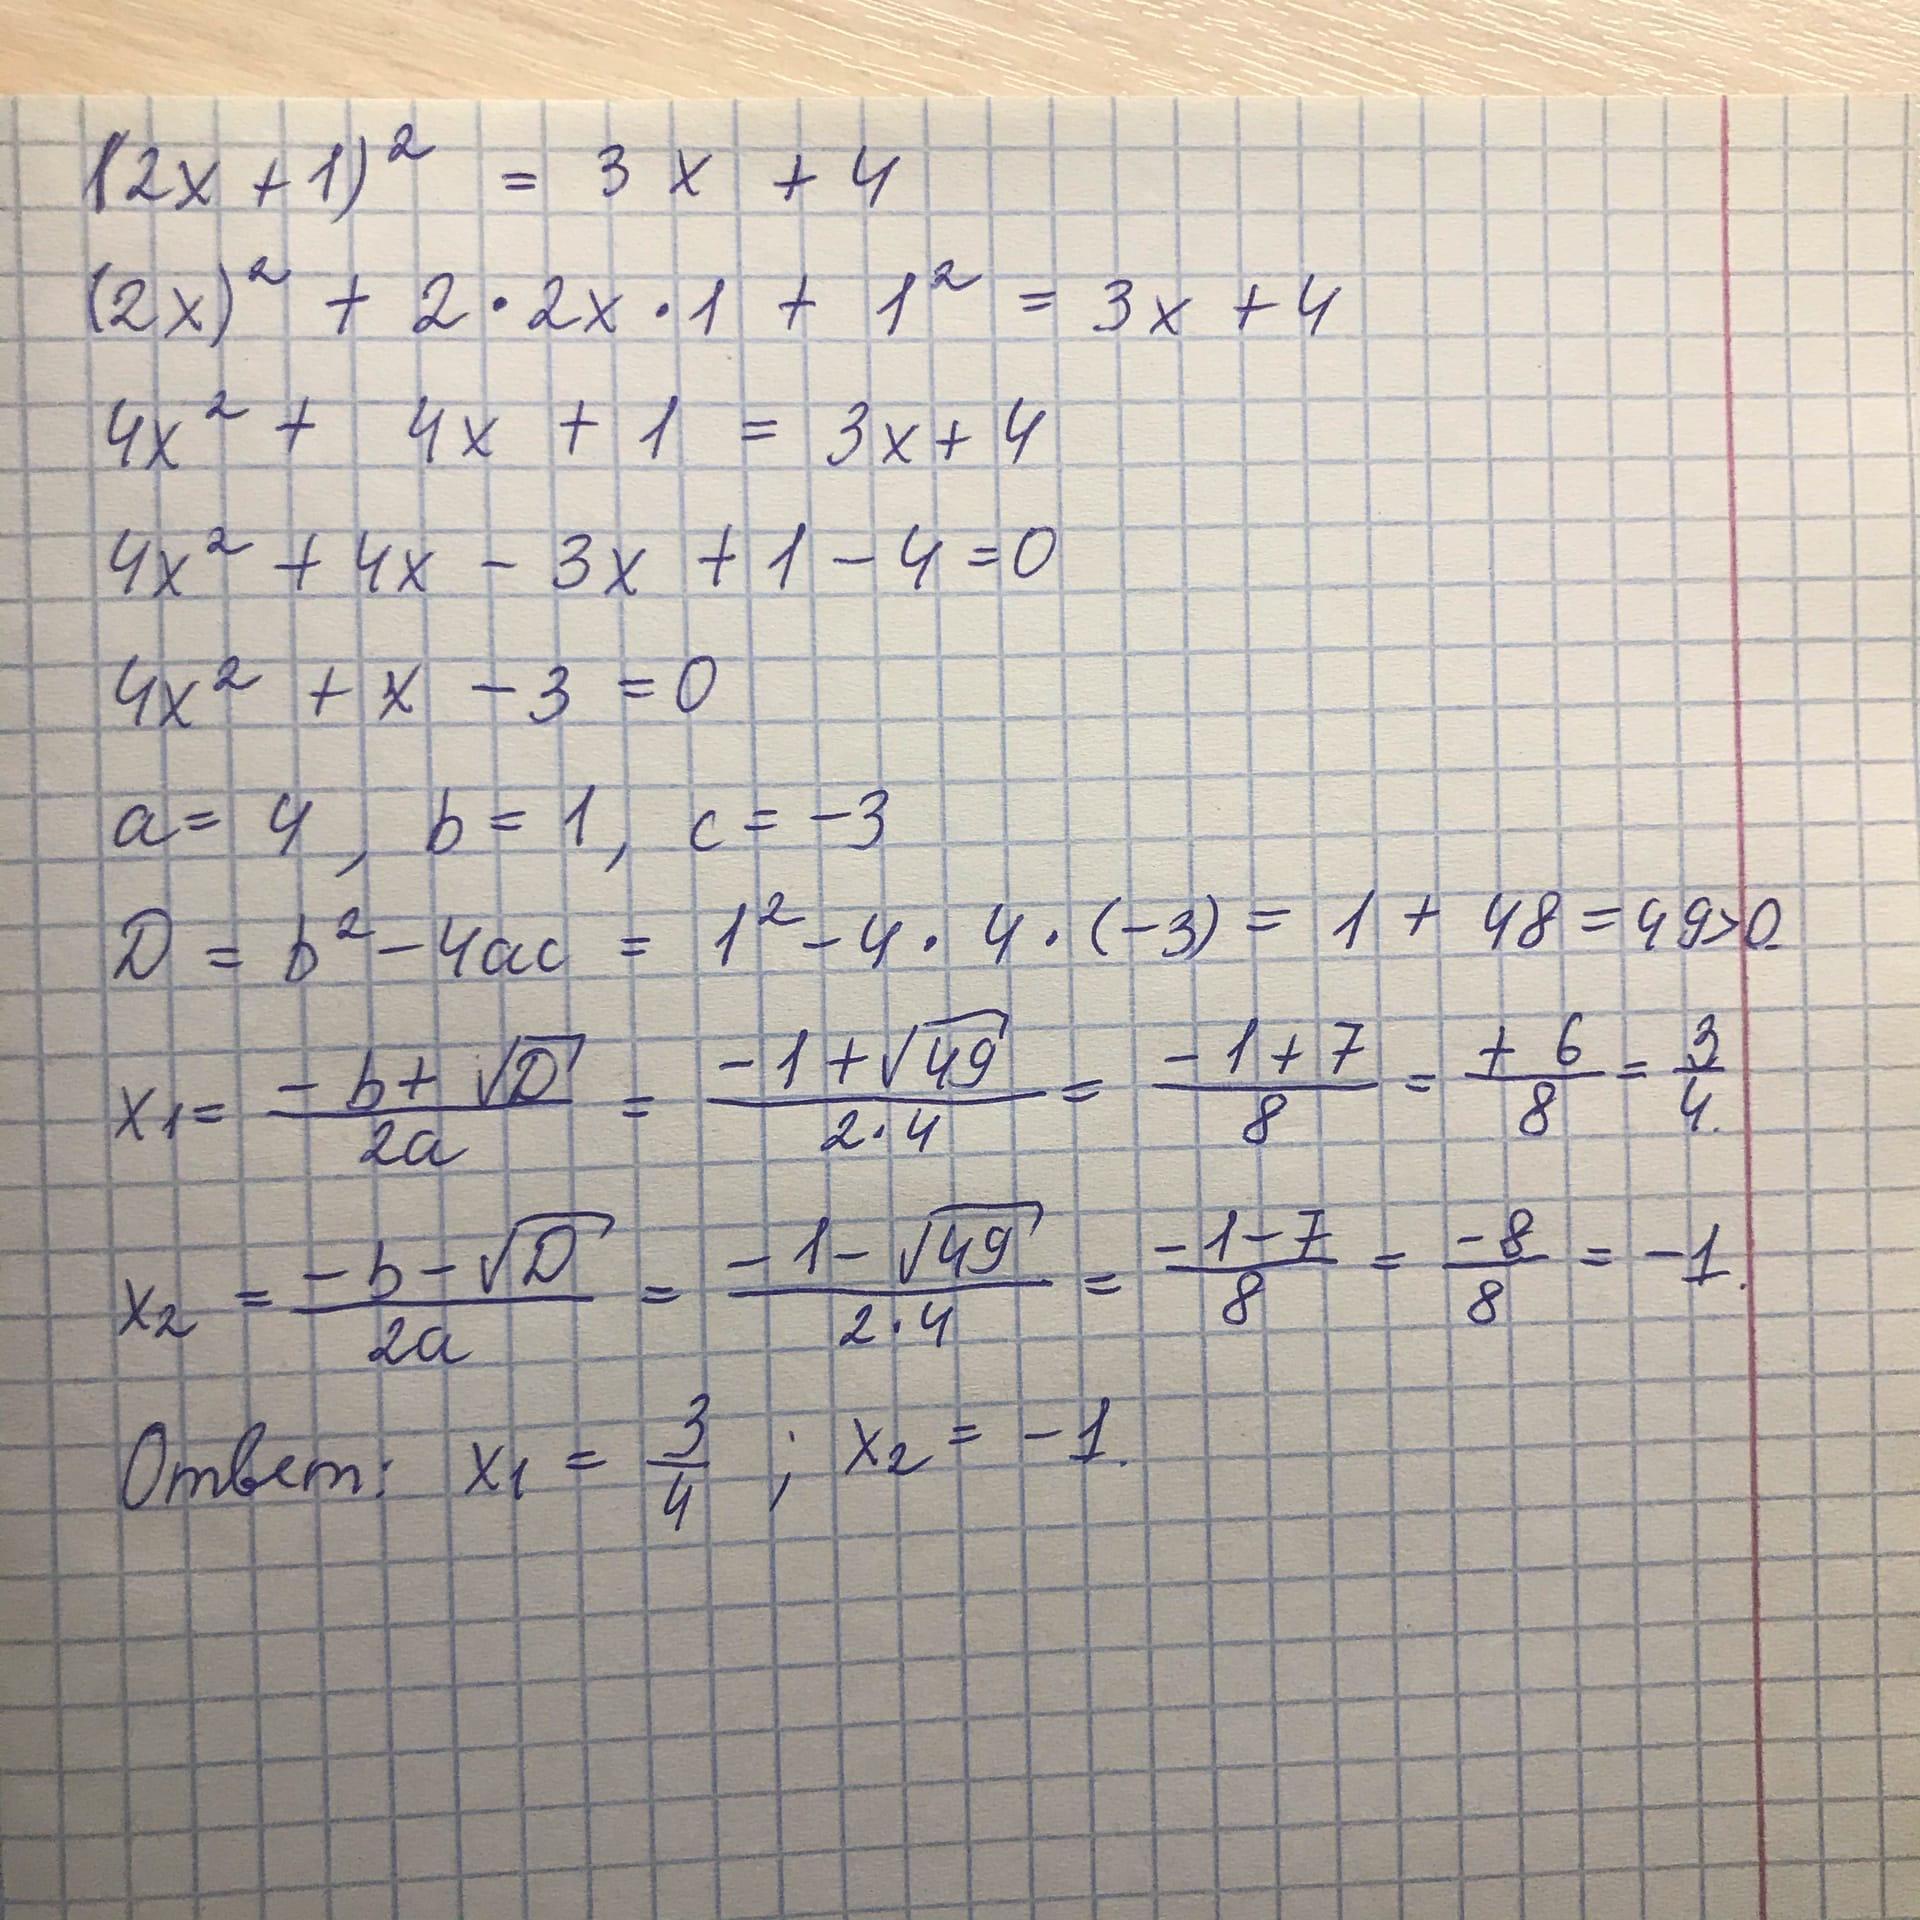 (2x + 1)² = 3x + 4
(2x)² + 2 · 2x · 1 + 1² = 3x + 4
4x² + 4x + 1 = 3x + 4
4x² + 4x - 3x + 1 - 4 = 0
4x² + x - 3 = 0
a = 4, b = 1, c = -3
D = b² - 4ac = 1² - 4 · 4 · (-3) = 1 + 48 = 49 > 0
x₁ = (-b + √D)/(2a) = (-1 + √49)/(2·4) = (-1 + 7)/8 = (+6)/8 = 3/4.
x₂ = (-b - √D)/(2a) = (-1 - √49)/(2·4) = (-1 - 7)/8 = (-8)/8 = -1.
Ответ: x₁ = 3/4 ; x₂ = -1.